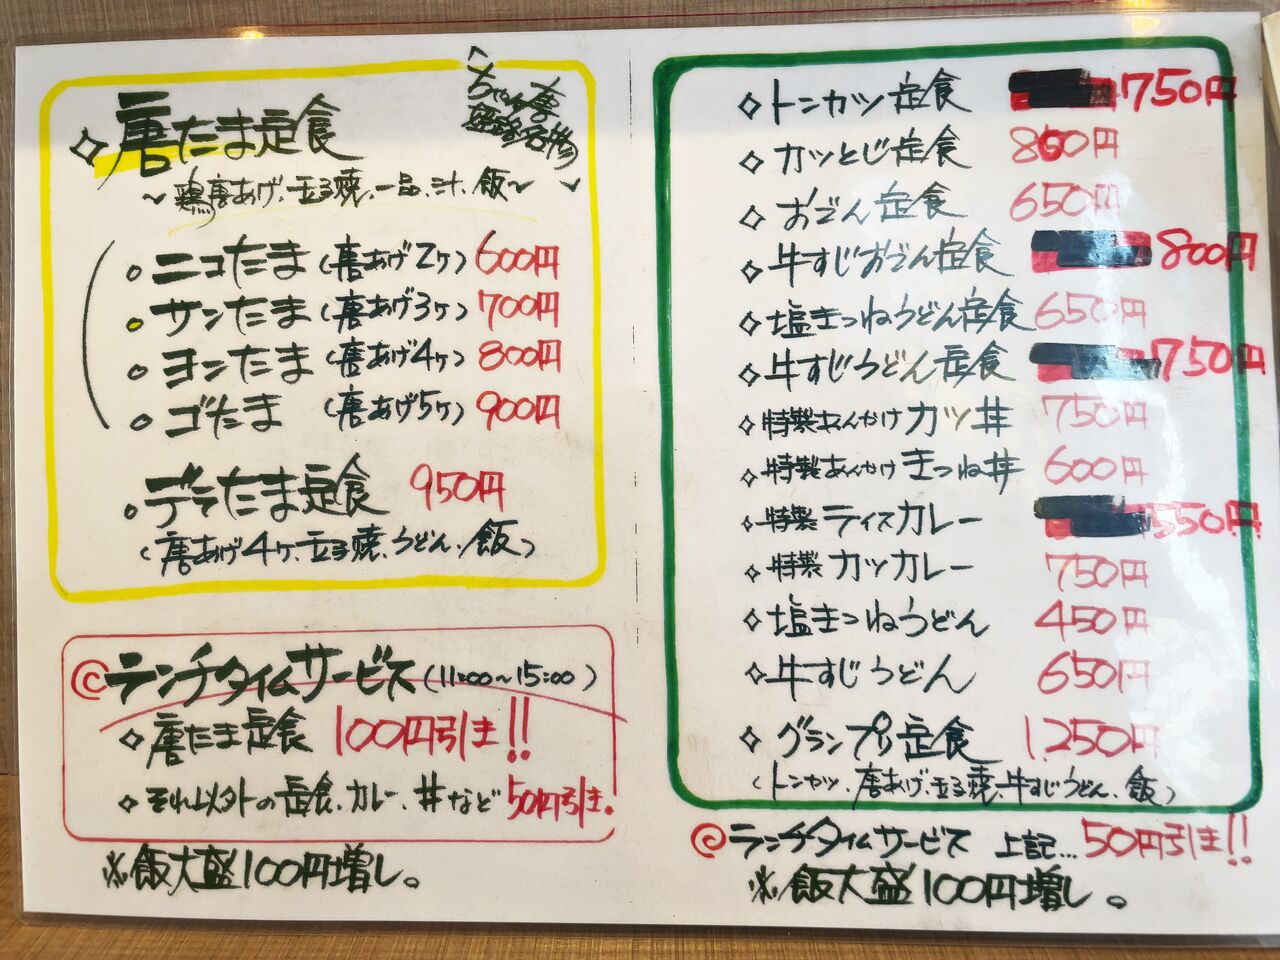 ちゃん唐
姫路名物
◇唐たま定食
～鶏唐あげ、玉子焼、一品、汁、飯～
○ニコたま(唐あげ2ヶ) 600円
○サンたま(唐あげ3ヶ) 700円
○ヨンたま(唐あげ4ヶ) 800円
○ゴたま(唐あげ5ヶ) 900円
○デラたま定食 950円
(唐あげ4ヶ、玉子焼、うどん、飯)
◎ランチタイムサービス(11:00～15:00)
◇唐たま定食 100円引き!!
◇それ以外の定食、カレー、丼など50円引き。
※飯大盛100円増し。
◇トンカツ定食 750円
◇カツとじ定食 800円
◇おでん定食 650円
◇牛すじおでん定食 800円
◇塩きつねうどん定食 650円
◇牛すじうどん定食 750円
◇特製あんかけカツ丼 750円
◇特製あんかけきつね丼 600円
◇特製ライスカレー 550円
◇特製カツカレー 750円
◇塩きつねうどん 450円
◇牛すじうどん 650円
◇グランプリ定食 1,250円
(トンカツ、唐あげ、玉子焼、牛すじうどん、飯)
◎ランチタイムサービス 上記...50円引き!!
※飯大盛100円増し。